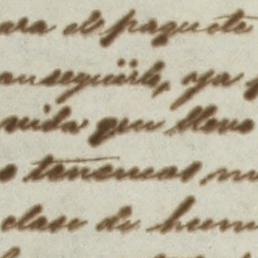 ara el paquete
anseguirle, ya
vida que llevo
o tenemos
clase de hum